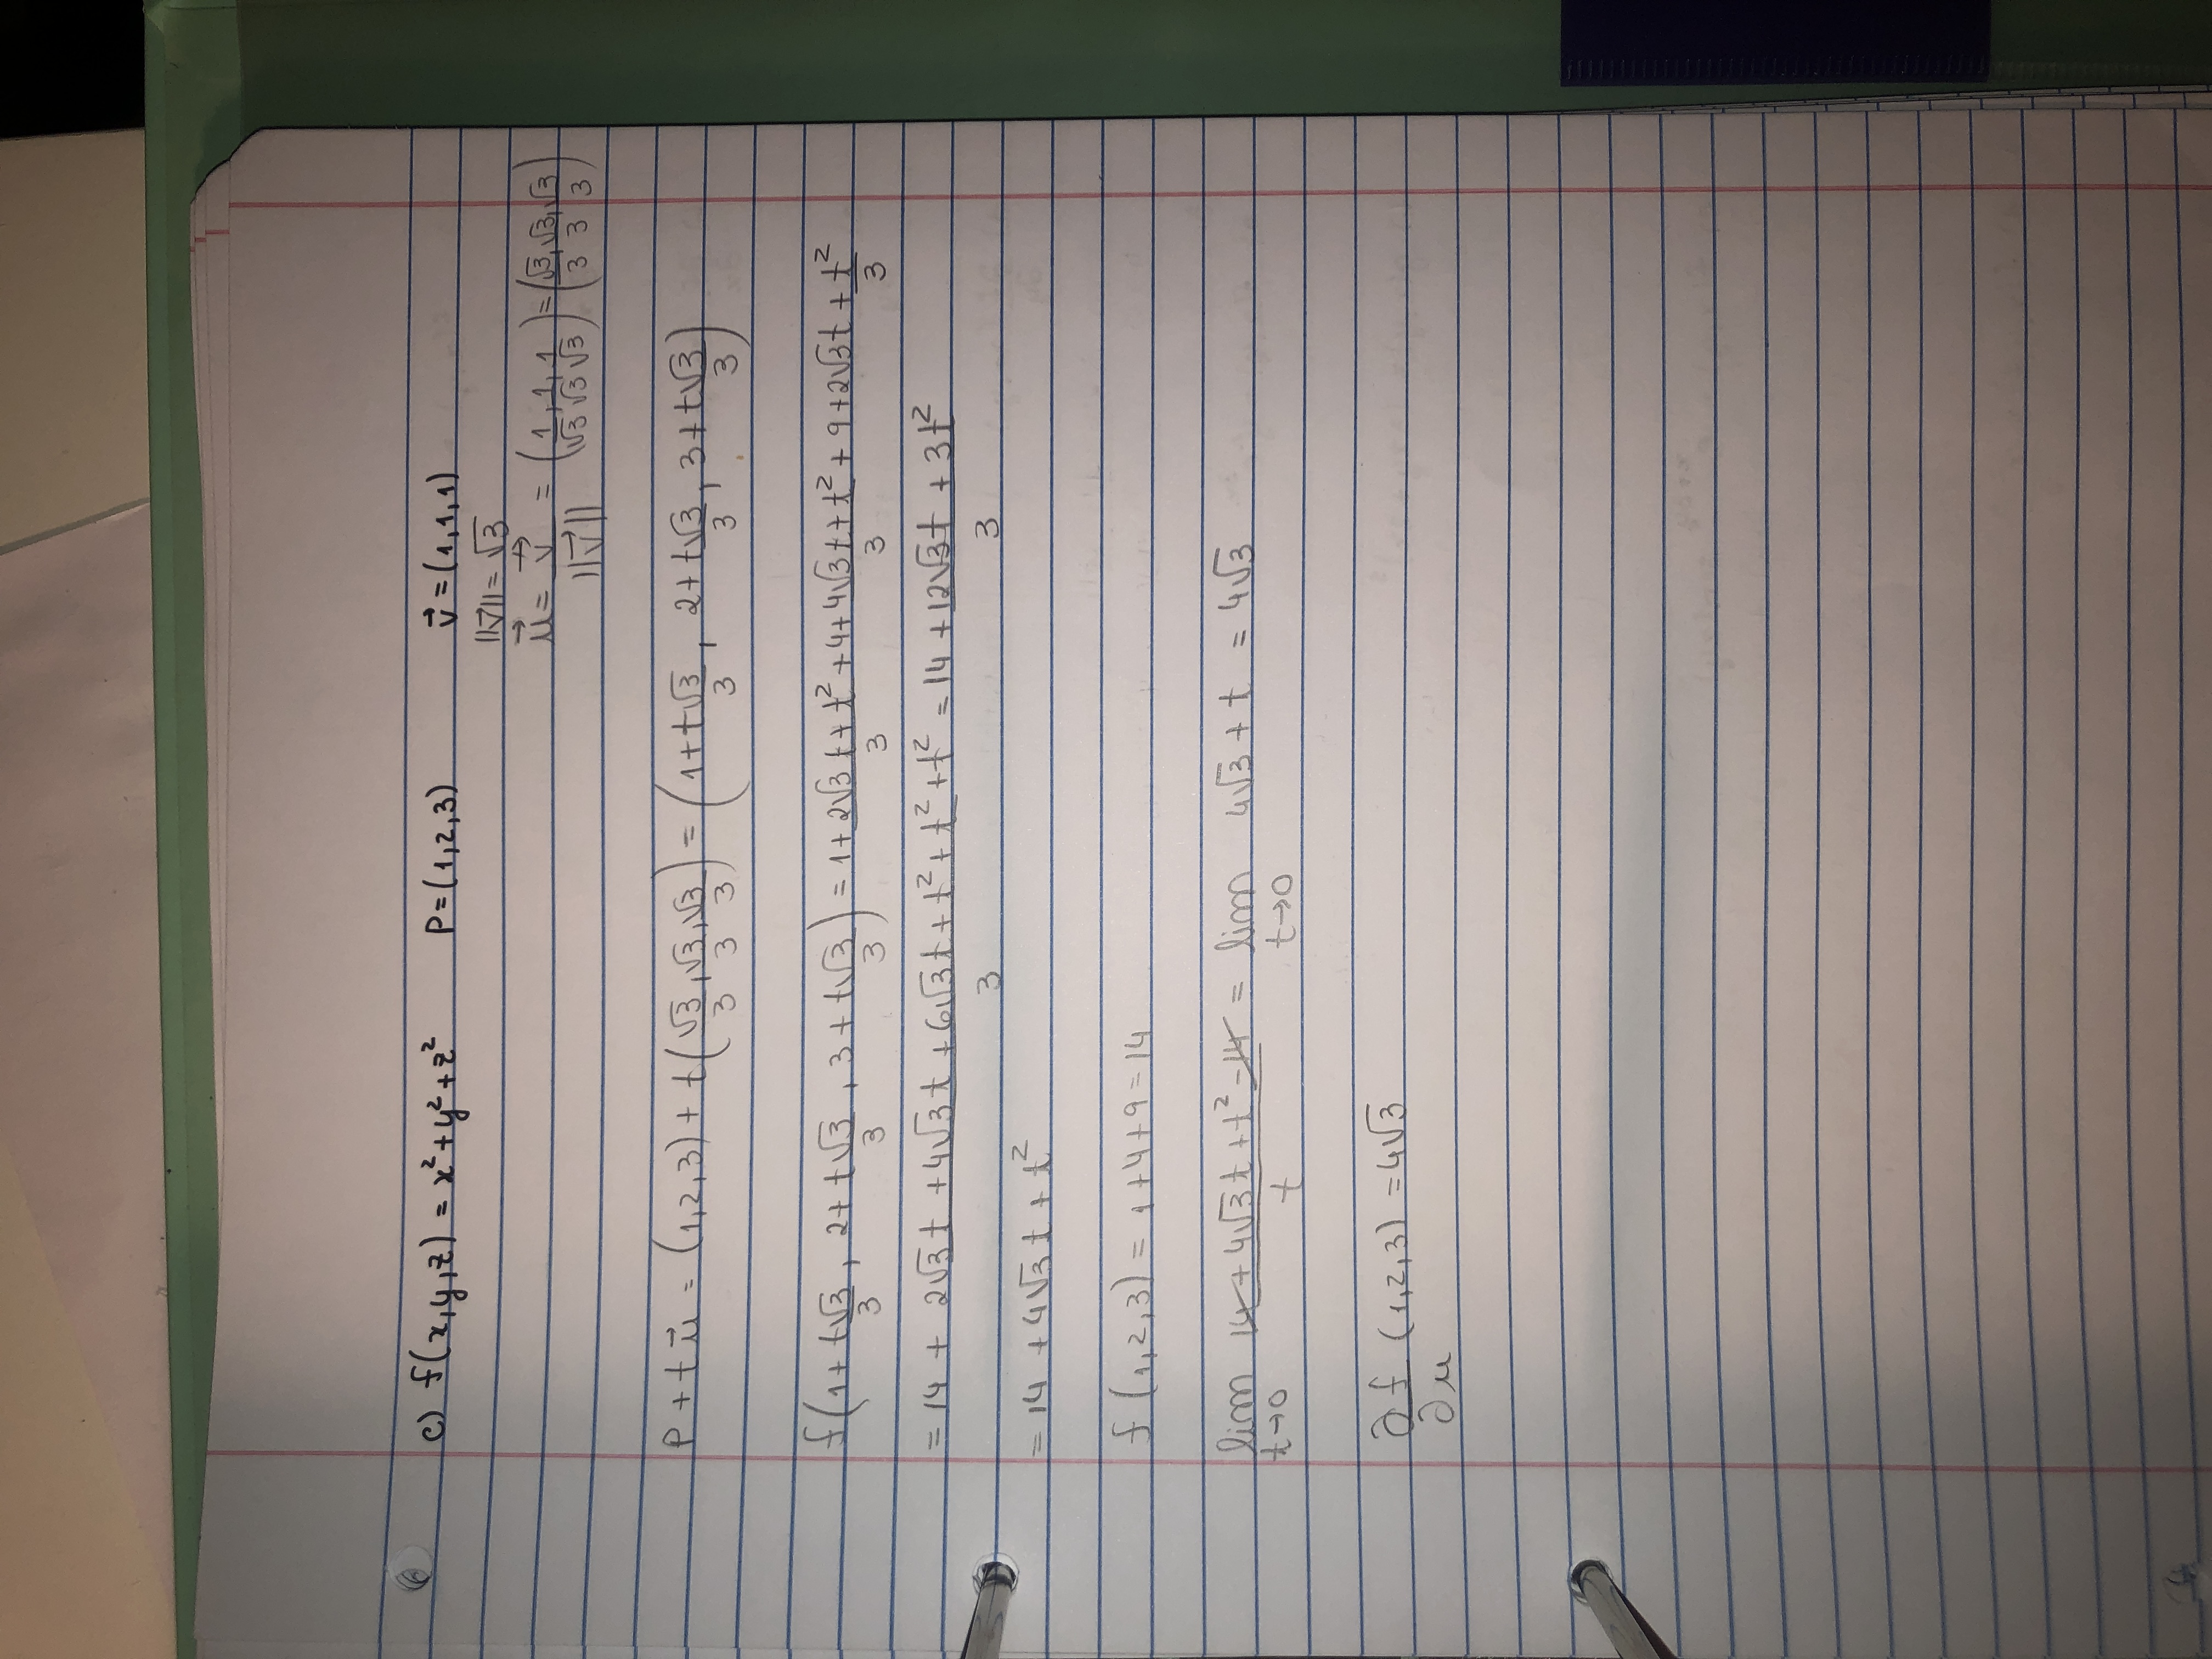 c) f(x,y,z) = x² + y² + z² P = (1,2,3) v⃗ = (1,1,1)
||v⃗|| = √3
u⃗ = v⃗/||v⃗|| = (1/√3, 1/√3, 1/√3) = (√3/3, √3/3, √3/3)
P + t u⃗ = (1,2,3) + t(√3/3, √3/3, √3/3) = (1+t√3/3, 2+t√3/3, 3+t√3/3)
f(1+t√3/3, 2+t√3/3, 3+t√3/3) = 1 + (2√3 t + t²)/3 + 4 + (4√3 t + t²)/3 + 9 + 2√3 t + t²/3
= 14 + (2√3 t + 4√3 t + 6√3 t + t² + t² + t²)/3 = 14 + (12√3 t + 3t²)/3
= 14 + 4√3 t + t²
f(1,2,3) = 1+4+9 = 14
lim t→0 (14 + 4√3 t + t² - 14)/t = lim t→0 4√3 + t = 4√3
∂f/∂u (1,2,3) = 4√3